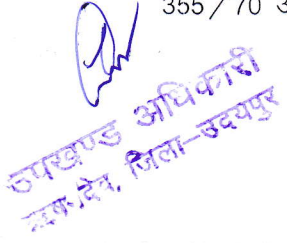 355/70 3
उपखण्ड अधिकारी
ऋषभदेव, जिला-उदयपुर